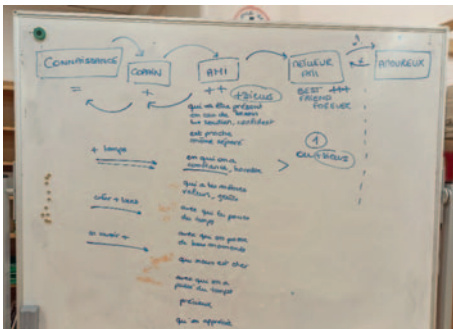 CONNAISSANCE
COPAIN
AMI
MEILLEUR
AMI
AMOUREUX
=
+
++
+sieurs
BEST +++
FRIEND
FOREVER
qui va être présent
en cas de besoin
un soutien, confident
est proche
même séparé
+ temps
en qui on a
confiance,
>
1
ou +sieurs
qui a les mêmes
valeurs, goûts
créer + liens
avec qui tu passes
du temps
en savoir +
avec qui on passe
de bons moments
qui nous est cher
avec qui on a
passé du temps
précieux
qu'on apprécie